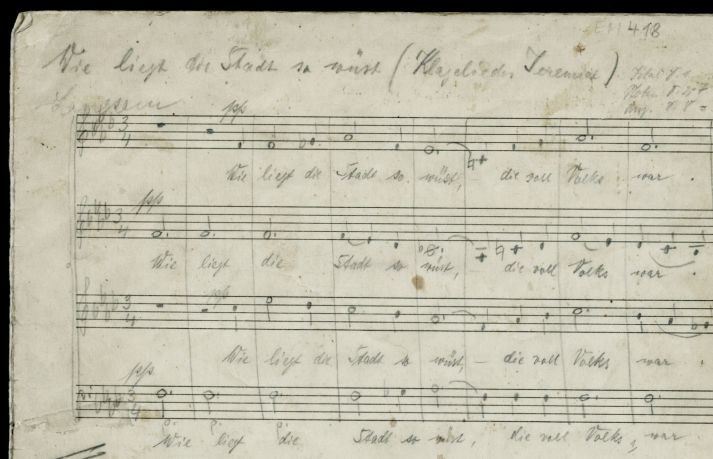 EM 418
Wie liegt die Stadt so wüst (Klagelieder Jeremiae)
Langsam
pp
3 4
Wie liegt die Stadt so wüst, – die voll Volks war .
pp
3 4
Wie liegt die Stadt so wüst, die voll Volks war .
pp
3 4
Wie liegt die Stadt so wüst, – die voll Volks war .
pp
3 4
Wie liegt die Stadt so wüst, die voll Volks war